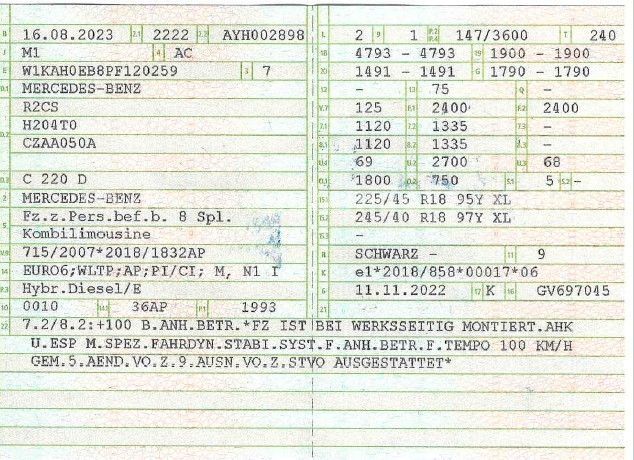 B 16.08.2023 2.1 2222 2.2 AYH002898
J M1 4 AC
E W1KAH0EB8PF120259 3 7
D.1 MERCEDES-BENZ
R2CS
D.2 H204T0
CZAA050A
D.3 C 220 D
2 MERCEDES-BENZ
5 Fz.z.Pers.bef.b. 8 Spl.
Kombilimousine
V.9 715/2007*2018/1832AP
14 EURO6;WLTP;AP;PI/CI; M, N1 I
P.3 Hybr.Diesel/E
10 0010 14.1 36AP P.1 1993
L 2 9 1 P.2 P.4 147/3600 T 240
18 4793 - 4793 19 1900 - 1900
20 1491 - 1491 G 1790 - 1790
12 - 13 75 Q -
V.7 125 F.1 2400 F.2 2400
7.1 1120 7.2 1335 7.3 -
8.1 1120 8.2 1335 8.3 -
U.1 69 U.2 2700 U.3 68
O.1 1800 O.2 750 S.1 5 S.2 -
15.1 225/45 R18 95Y XL
15.2 245/40 R18 97Y XL
15.3 -
R SCHWARZ - 11 9
K e1*2018/858*00017*06
6 11.11.2022 17 K 16 GV697045
21
22 7.2/8.2:+100 B.ANH.BETR.*FZ IST BEI WERKSSEITIG MONTIERT.AHK
U.ESP M.SPEZ.FAHRDYN.STABI.SYST.F.ANH.BETR.F.TEMPO 100 KM/H
GEM.5.AEND.VO.Z.9.AUSN.VO.Z.STVO AUSGESTATTET*